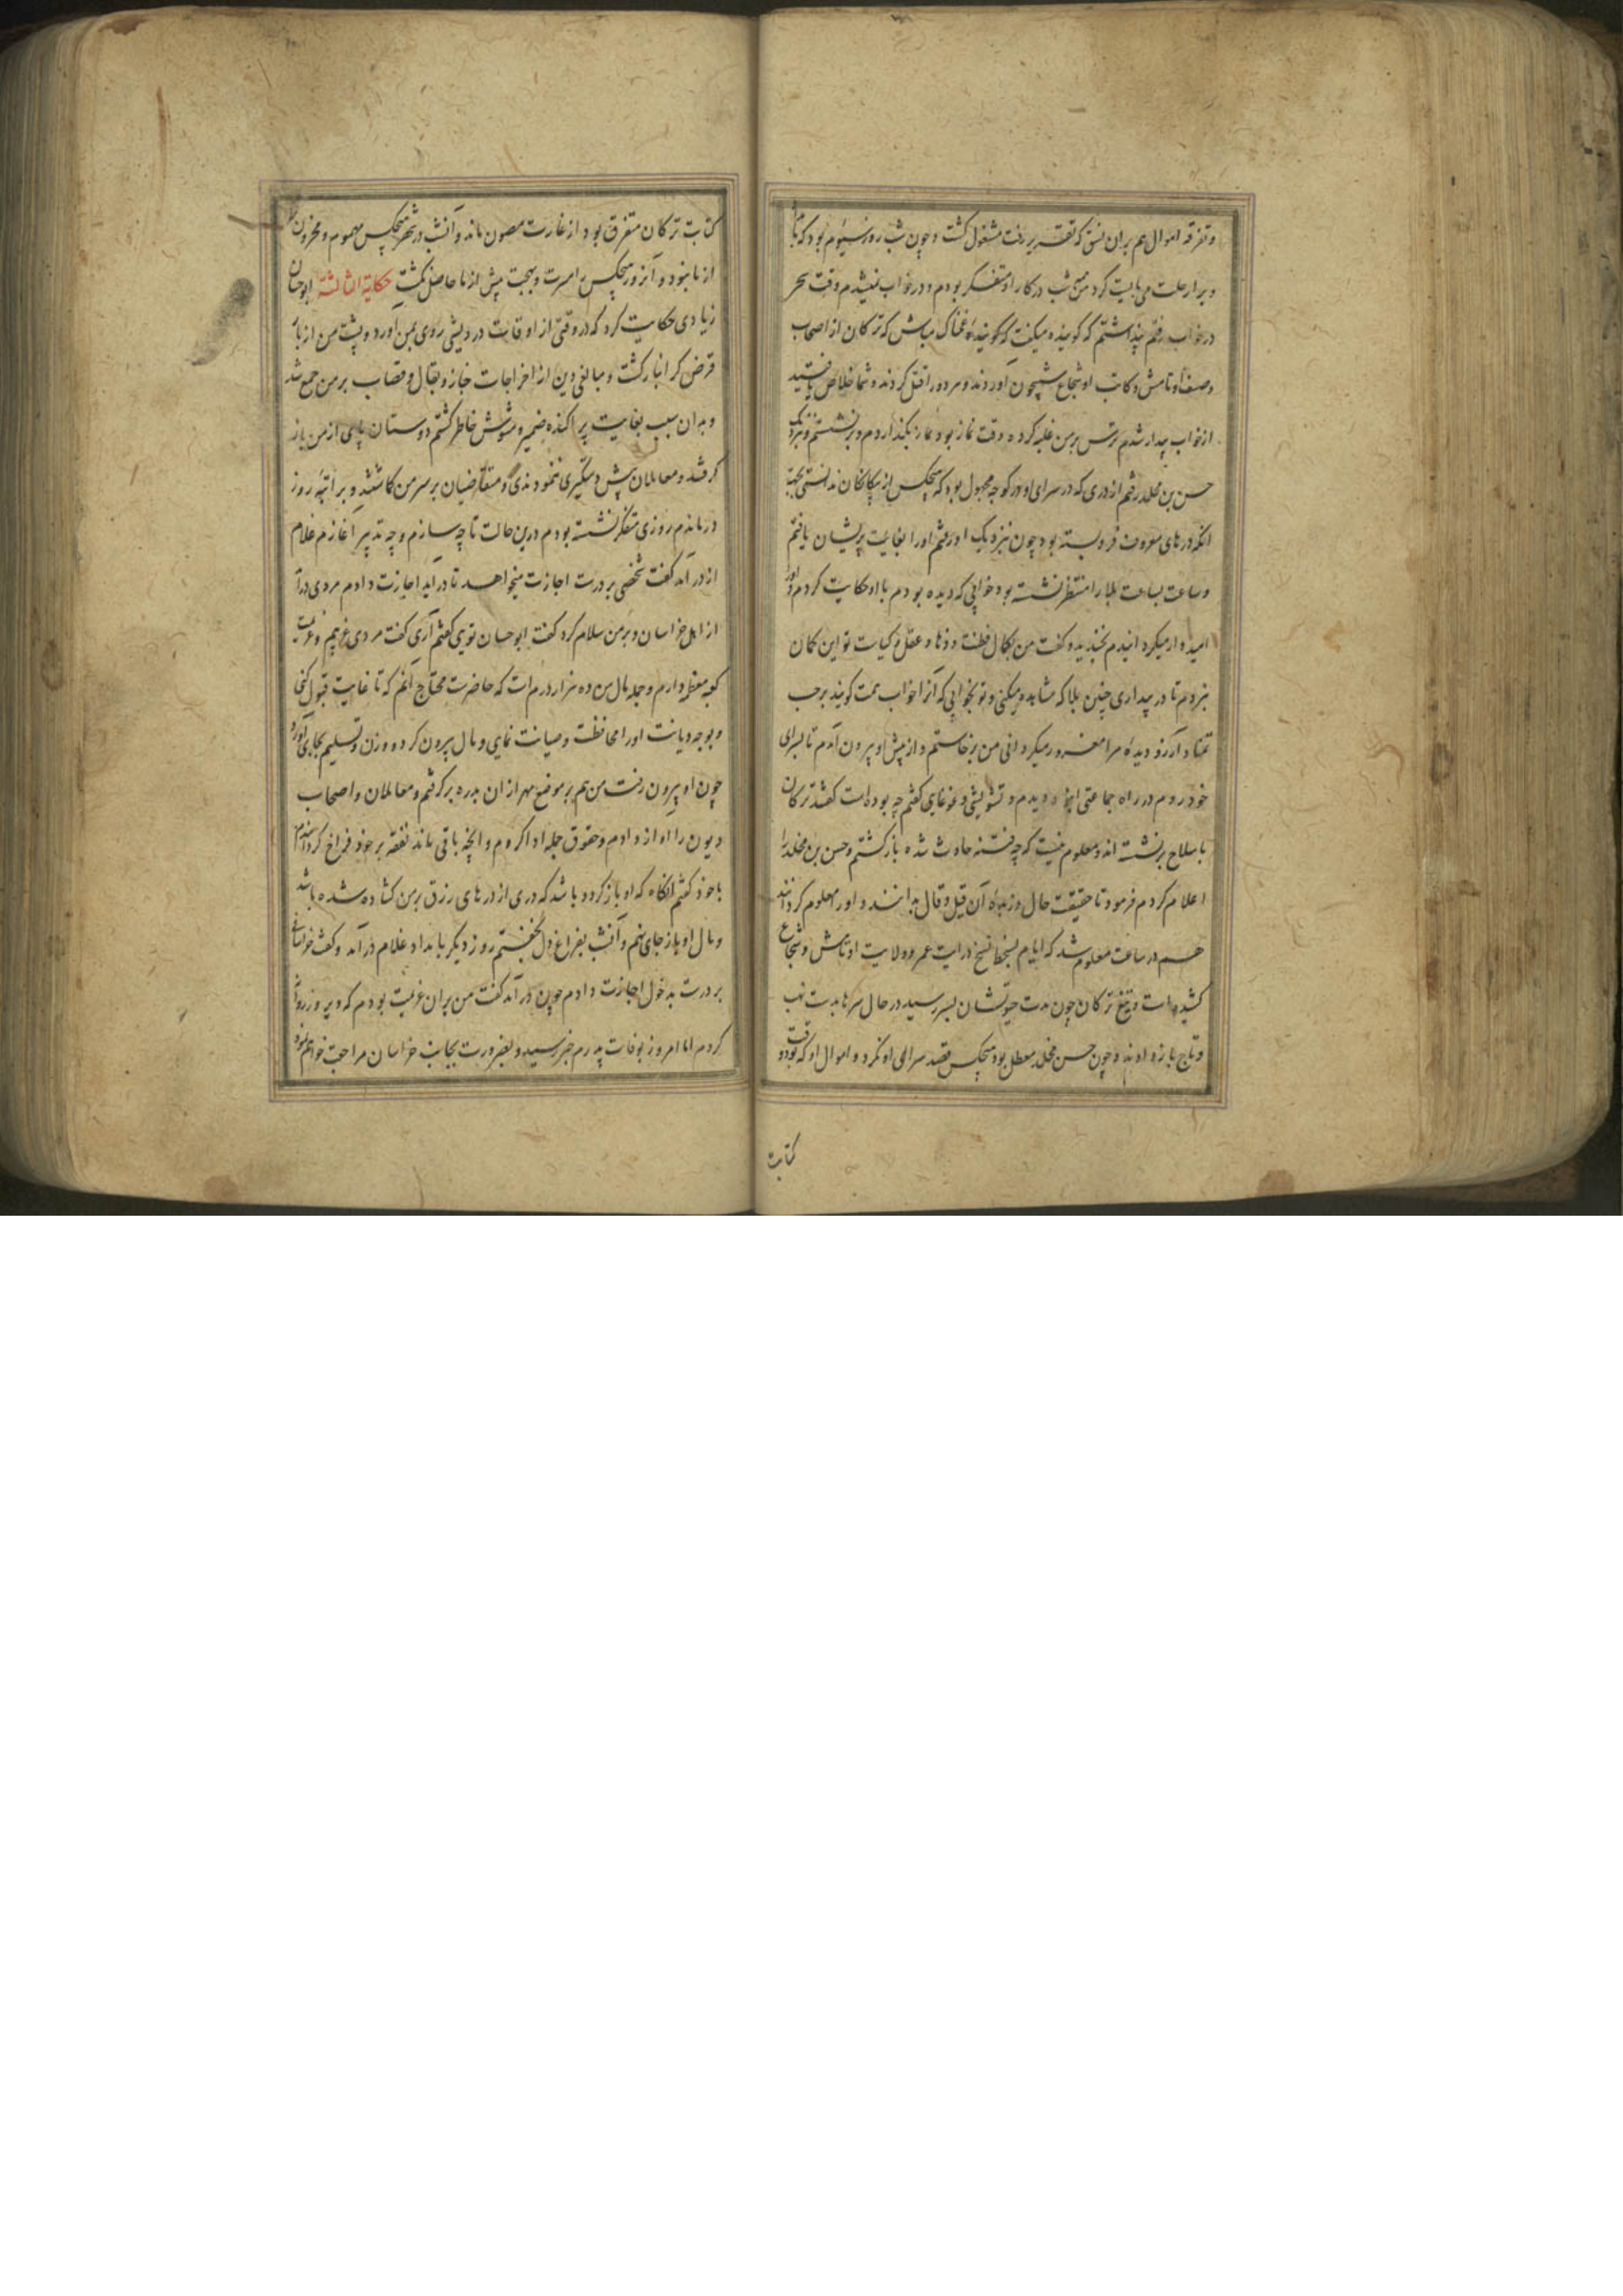 و تفرقه اموال هم بران نسق که تقریر رفت مشغول کشت و چون شب روز سیوم بود که بامداد
ویرا رحلت می بایست کرد من شب در کار او متفکر بودم و در خواب نمیشدم وقت سحر
در خواب رفتم پنداشتم که کوینده میکفت که کوینده غمناک مباش که ترکان از اصحاب
وصیف اوتامش و کاتب او شجاع شبیخون آوردند و هر دو را قتل کردند و شما خلاص یافتید
از خواب بیدار شدم ترس بر من غلبه کرده وقت نماز بود نماز بکذاردم و برنشستم و نزدیک
حسن بن مخلد رفتم از دری که در سرای او در کوچه مجهول بود که هیچکس از بیکانکان ندانستی بجهت
انکه درهای معروف فروبسته بود چون نزدیک او رفتم او را بغایت پریشان یافتم
و ساعت بساعت بلا را منتظر نشسته بود خوابی که دیده بودم با او حکایت کردم و او را
امیدوار میکردانیدم بخندید و کفت من بکمال فطنت و ذهاء و عقل و کیاست تو این کمان
نبردم تا در بیداری چنین بلا که مشاهده میکنی و تو بخوابی که آنرا خواب تمنت کویند بر حسب
تمنا و آرزو دیدۀ مرا مغرور میکردانی من برخاستم و از پیش او بیرون آمدم تا بسرای
خود روم در راه جماعتی انبوه دیدم و تشویشی و غوغایی کفتم چه بوده است کفتند ترکان
با سلاح برنشسته اند و معلوم نیست که چه فتنه حادث شده بازکشتم و حسن بن مخلد را
اعلام کردم فرمود تا حقیقت حال و زبدۀ آن قیل و قال بدانند و او را معلوم کردانند
هم در ساعت معلوم شد که ایام بخط نسخ در آیت عمر و ولایت اوتامش و شجاع
کشیده است و تیغ ترکان چون مدت حیوتشان بسر رسید در حال سرها بدست نهب
و تاج باز دادند و چون حسن مخلد معطل بود هیچکس قصد سرای او نکرد و اموال او که بودو
کتابت
کتابت ترکان متفرق بود از غارت مصون ماند و آنشب در شهر هیچکس مهموم و محزون تر
از ما نبود و آنروز هیچکس را مسرت و بهجت بیش از ما حاصل نکشت حکایة الثالثة ابوحسان
زیادی حکایت کرد که در وقتی از اوقات درویشی روی بمن آورد و پشت من از بار
قرض کرانبار کشت و مبالغی دین از اخراجات خباز و بقال و قصاب بر من جمع شد
و بدان سبب بغایت پراکنده ضمیر و مشوش خاطر کشتم دوستان پای از من باز
کرفتند و معاملان پیش دستکیری ننمودندی و متقاضیان بر سر من کماشتند و براتبه روز
درماندم روزی متفکر نشسته بودم درین حالت تا چه سازم و چه تدبیر آغازم غلام
از در آمد کفت شخصی بر درست اجازت میخواهد تا درآید اجازت دادم مردی درآمد
از اهل خراسان و بر من سلام کرد کفت ابوحسان تویی کفتم آری کفت مردی غریبم و عزیمت
کعبه معظمه دارم و جمله مال من ده هزار درم است که حاضرست محتاج آنم که تا غایت قبول کنی
و بوجه دیانت او را محافظت و صیانت نمایی و مال بیرون کرد و وزن و تسلیم بجای آورد
چون او بیرون رفت من هم بر موضع مهر از ان بدره برکرفتم و معاملان و اصحاب
دیون را آواز دادم و حقوق جمله ادا کردم و آنچه باقی ماند نفقه بر خود فراخ کردانیدم
با خود کفتم آنکاه که او باز کردد باشد که دری از درهای رزق بر من کشاده شده باشد
و مال او باز جای نهم و آنشب بفراغ دل بخفتم روز دیکر بامداد غلام درآمد و کفت خراسانی
بر درست بدخول اجازت دادم چون درآمد کفت من بران عزیمت بودم که دیروز روان
کردم اما امروز بوفات پدرم خبر رسید و بضرورت بجانب خراسان مراجعت خواهم نمود